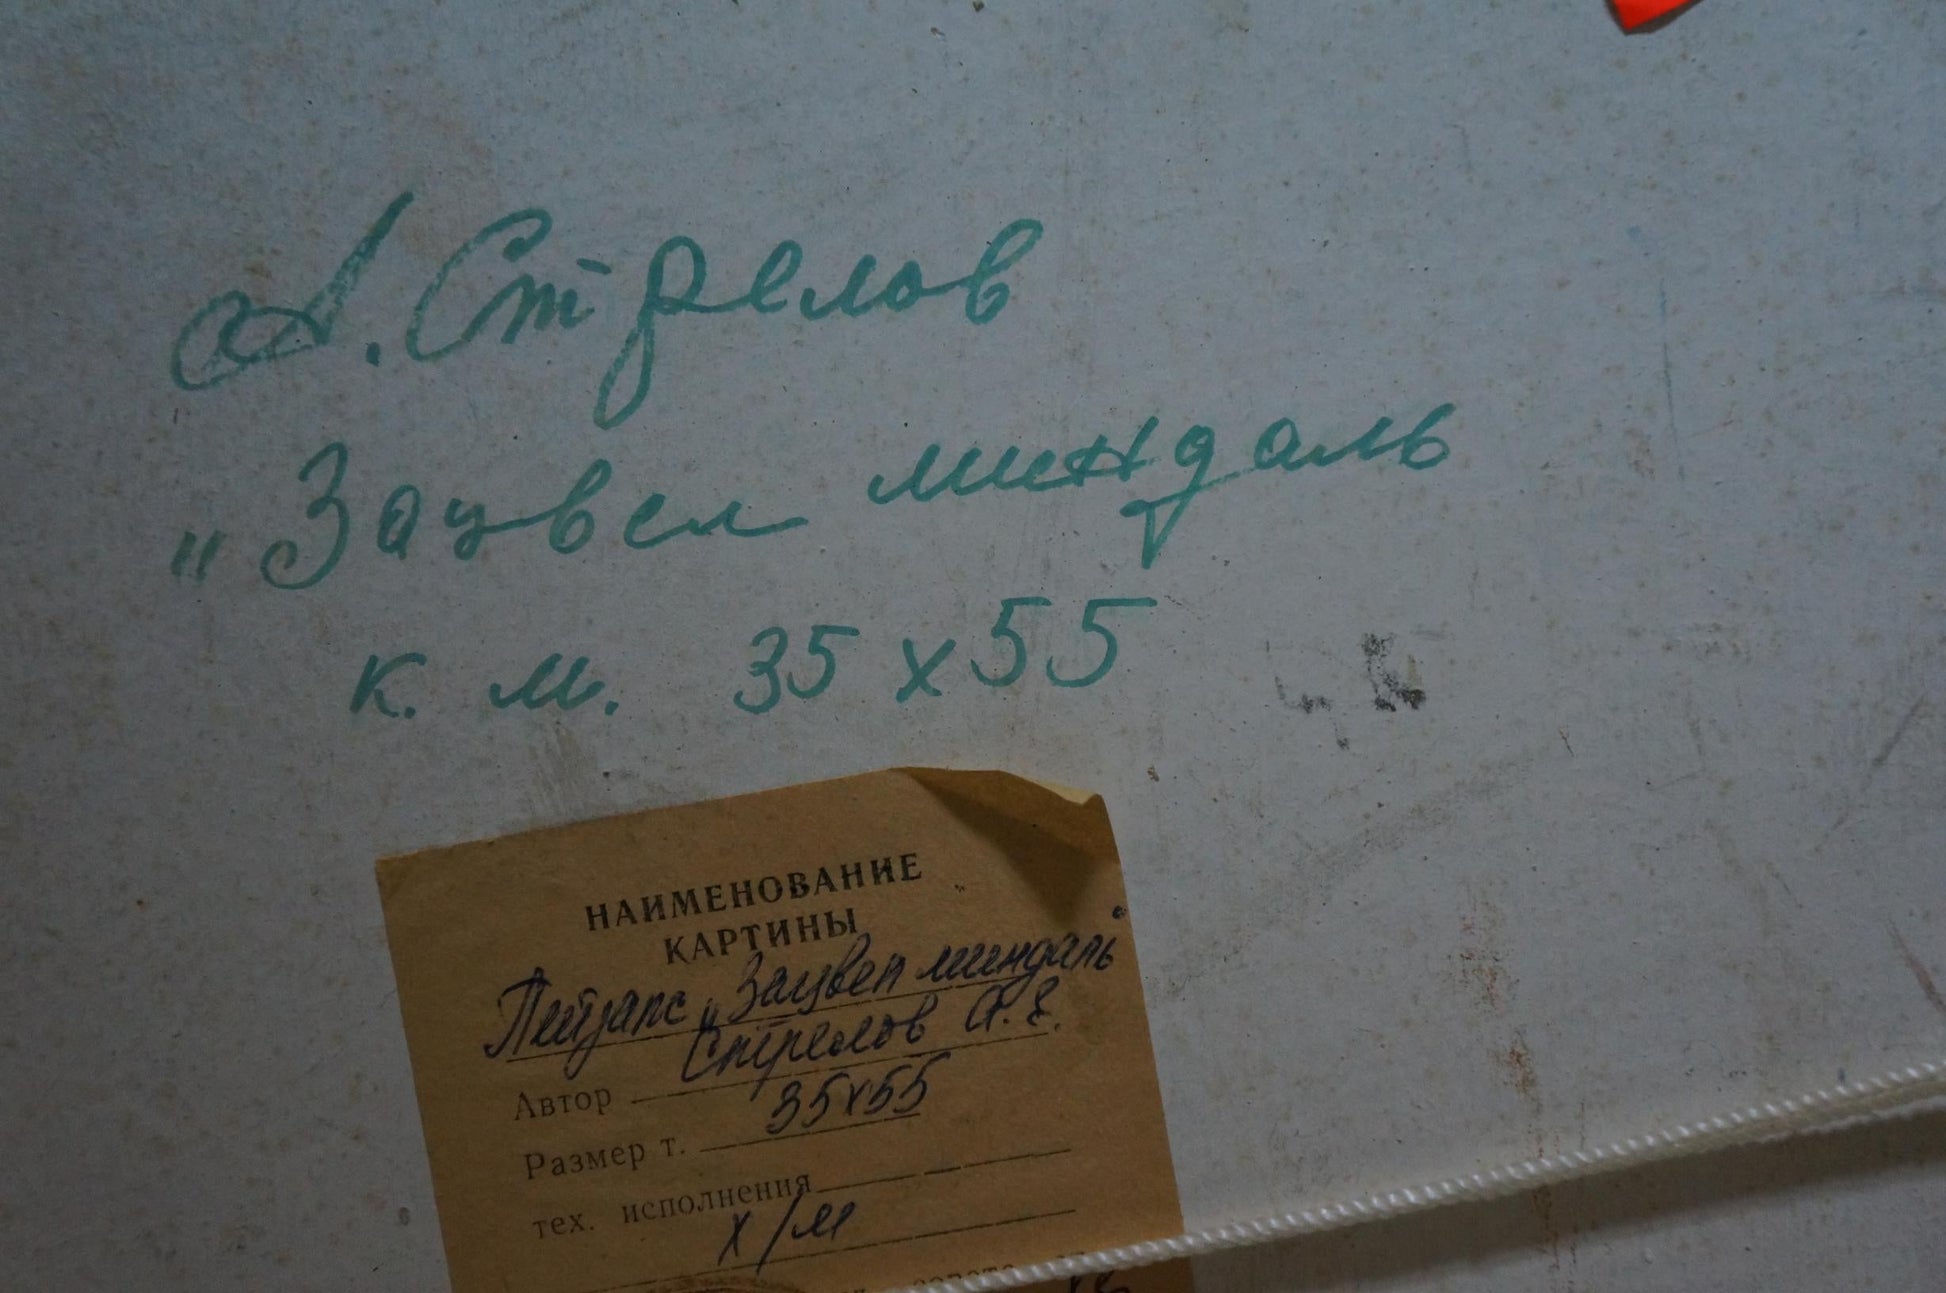 А. Стрелов
„Зацвел миндаль
к. м. 35 х 55
НАИМЕНОВАНИЕ
КАРТИНЫ
Пейзаж „Зацвел миндаль"
Автор Стрелов А. Е.
Размер т. 35х55
тех. исполнения
х/м